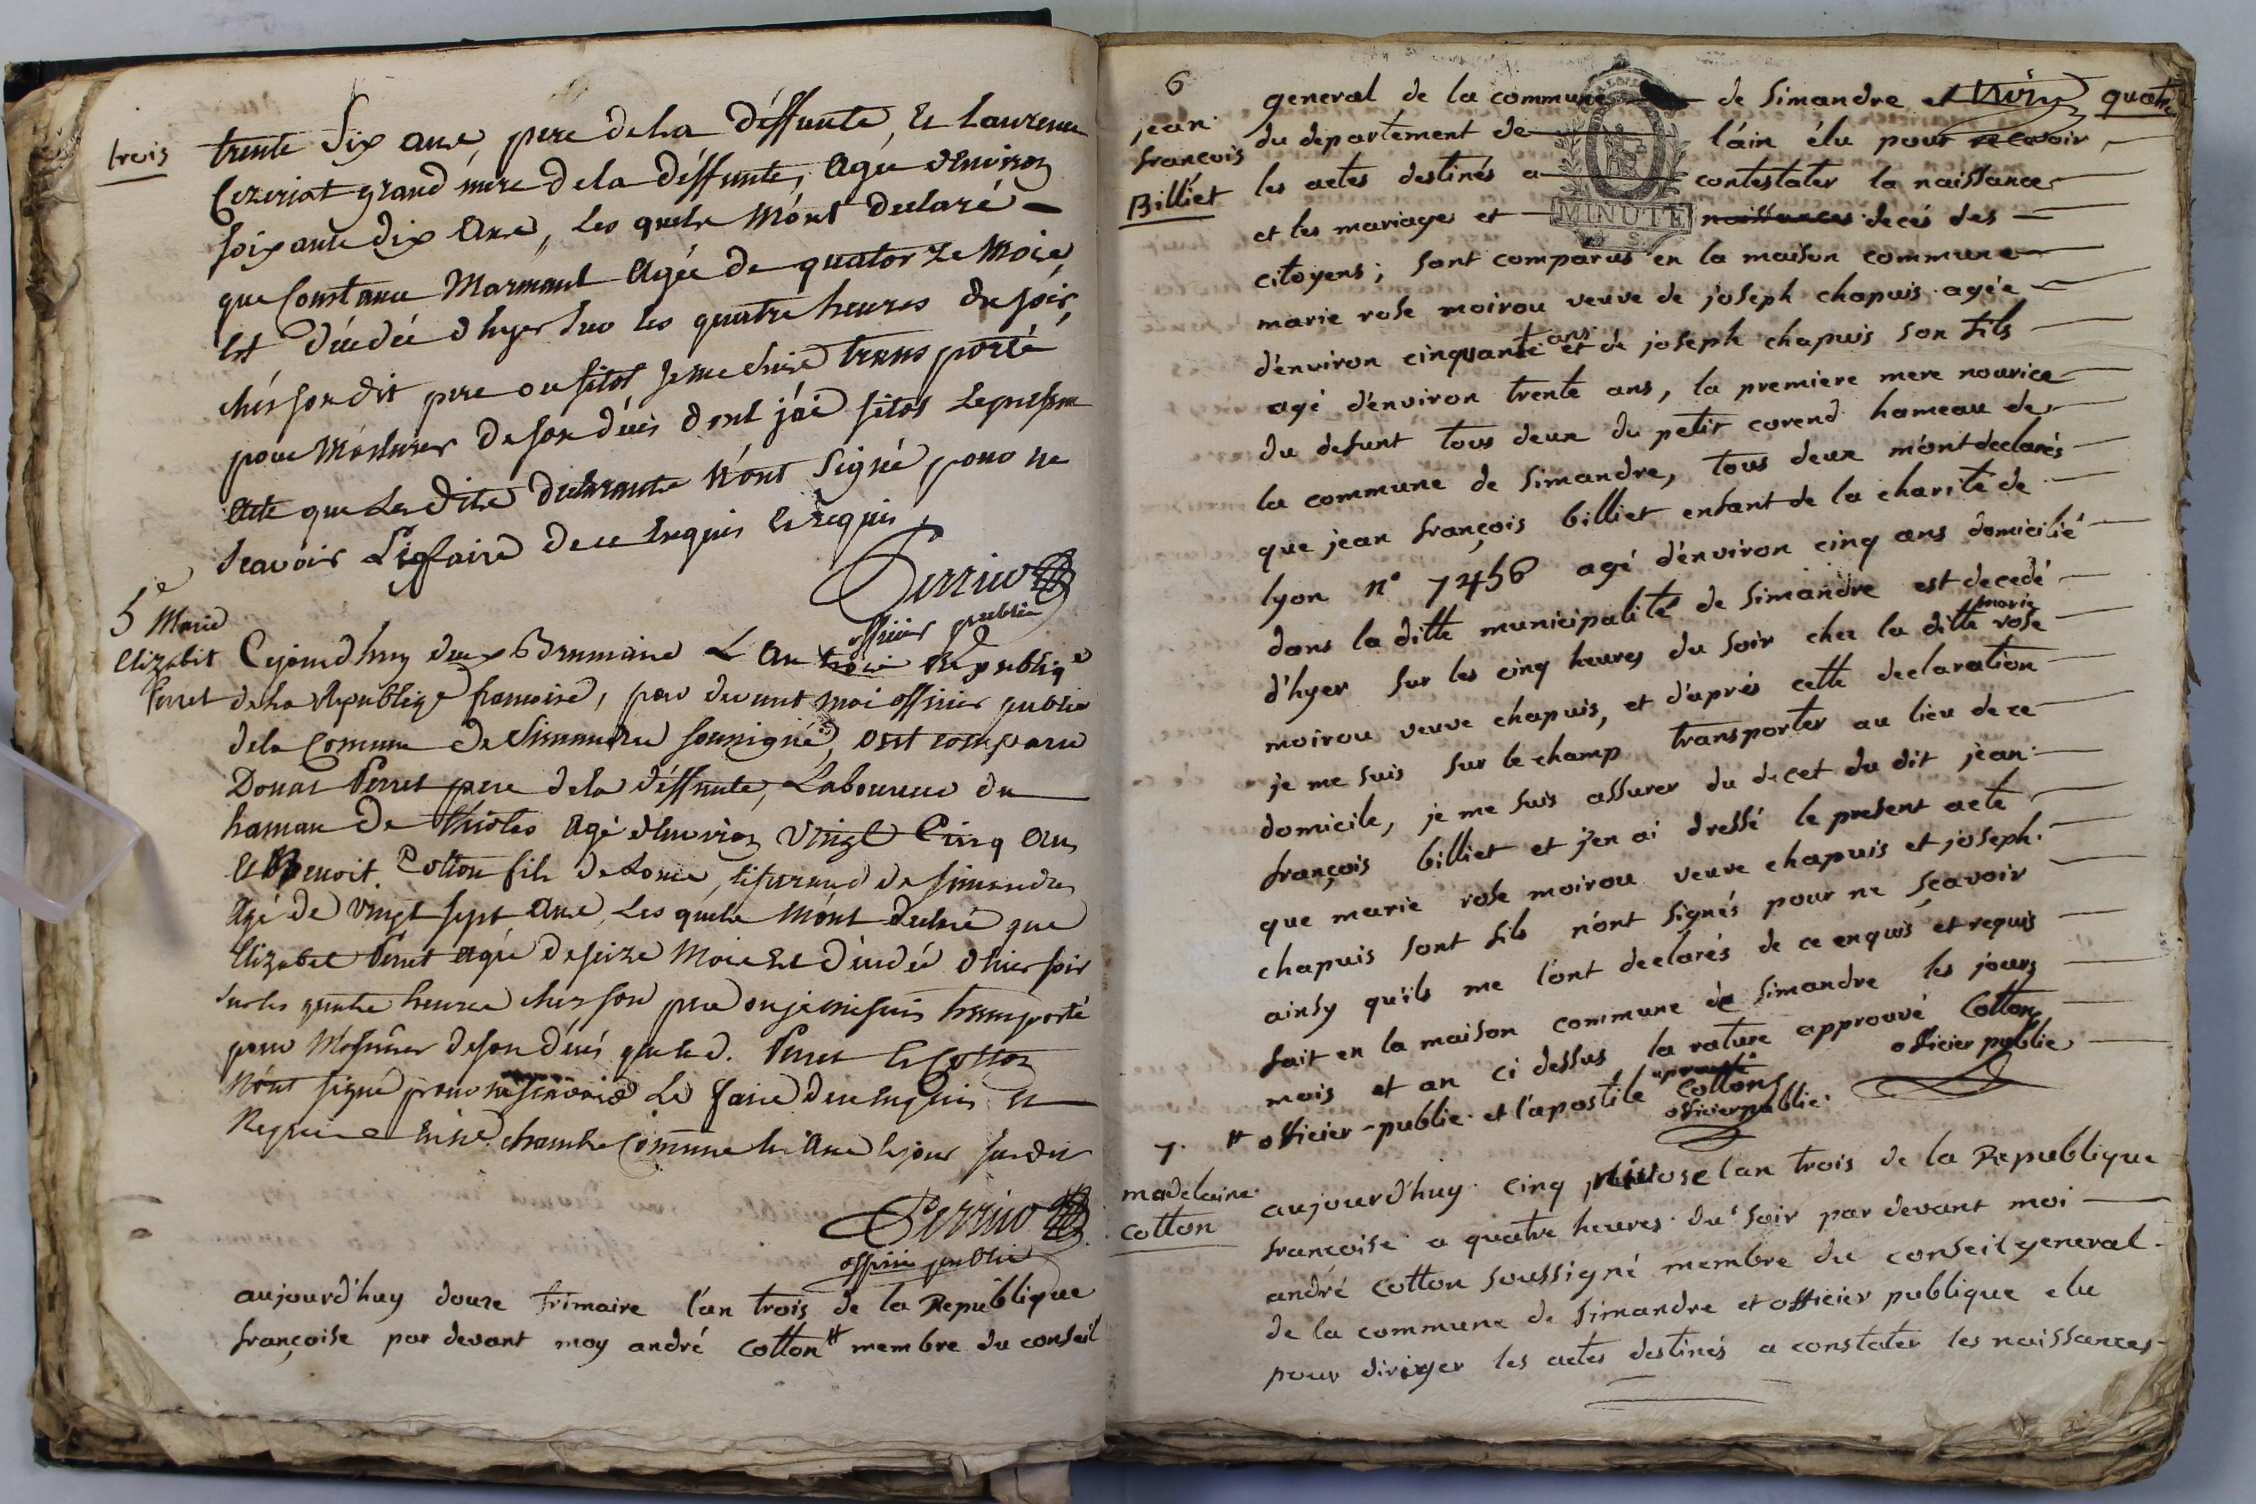 trois
trente six ans, pere de la déffunte, et laurence
Cezeriat grand mère de la déffunte, agée d'environ
soixante dix ans, les quels m'ont declaré
que Constance Marmant agée de quatorze mois
est décédée d'hyer sur les quatre heures du soir,
chés son dit pere ou sitot je me suis transporté
pour m'assurer de son décés dont j'ai sitot le présent
acte que les dits déclarants n'ont signé pour ne
scavoir le faire de ce enquis et requis
Perrin
officier public
5e Marie
Elizabet
Perret
Cejourdhuy deux Brumaire L'an trois Republiq
de la Republiqe francoise, par devant moi officier public
de la Comune de Simandre soussigné, sont comparu
Donat Perret pere de la déffunte, Laboureur du
hamau de Thioles agé d'environ vingt Cinq ans
et Benoit Cotton fils de Louis, tisserand de Simandre
agé de vingt sept ans, les quels m'ont declaré que
Elizabet Perret agée de seize mois est décedée d'hier soir
sur les quatre heures chez son pere ou je me suis transporté
pour m'assurer de son décés que led. Perret et Cotton
n'ont signé pour ne scavoir le faire de ce enquis et
Requis en la chambre Comune les an et jour susdit
Perrin
officier public
aujourd'huy douze frimaire l'an trois de la Republique
françoise par devant moy andré Cotton # membre du conseil
quatre
6
jean
francois
Billiet
general de la commune de simandre et
du departement de l'ain élu pour recevoir
les actes destinés a contestater la naissance
et les mariages et naissances decés des
citoyens; sont comparus en la maison commune
marie rose moirou veuve de joseph chapuis agée
d'environ cinquante ans et de joseph chapuis son fils
agé d'environ trente ans, la premiere mere nourice
du defunt tous deux du petit corend hameau de
la commune de simandre, tous deux m'ont declarés
que jean françois billiet enfant de la charité de
lyon n° 7456 agé d'environ cinq ans domicilié
dans la ditte municipalité de simandre est decedé
d'hyer sur les cinq heures du soir chez la ditte marie rose
moirou veuve chapuis, et d'aprés cette declaration
je me suis sur le champ transporter au lieu de ce
domicile, je me suis assurer du decet du dit jean
françois billiet et j'en ai dressé le present acte
que marie rose moirou veuve chapuis et joseph
chapuis sont fils n'ont signés pour ne sçavoir
ainsy qu'ils me l'ont declarés de ce enquis et requis
fait en la maison commune de simandre les jours
mois et an ci dessus la rature approuvé Cotton
# officier-public et l'apostile aprouvé Cotton officier public
officier public
MINUTE
7.
madelaine
cotton
aujourd'huy cinq nivose l'an trois de la Republique
francoise a quatre heures du soir par devant moi
andré cotton soussigné membre du conseil general
de la commune de simandre et officier publique elu
pour diriger les actes destinés a constater les naissances